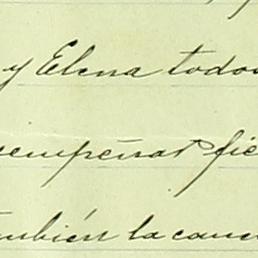 y Elena todos
sempeñar fie
ambién la canc